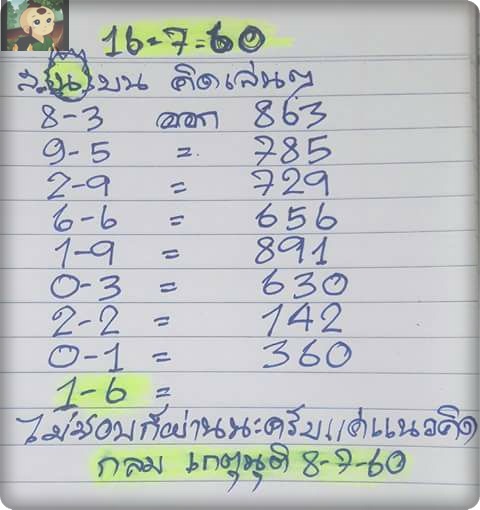 16-7=60
ล.บนบน คิดเล่นๆ
8-3 ออก 863
9-5 = 785
2-9 = 729
6-6 = 656
1-9 = 891
0-3 = 630
2-2 = 142
0-1 = 360
1-6 =
ไม่ชอบก็ผ่านนะครับแค่แนวคิด
กลม เกตุมุติ 8-7-60